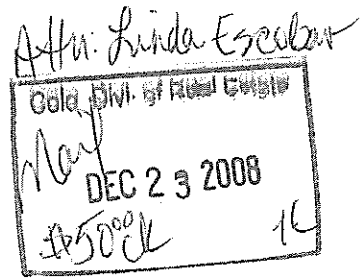 Attn: Linda Escobar
Colo. Div. of Real Estate
Mail
DEC 23 2008
$50.00 ck